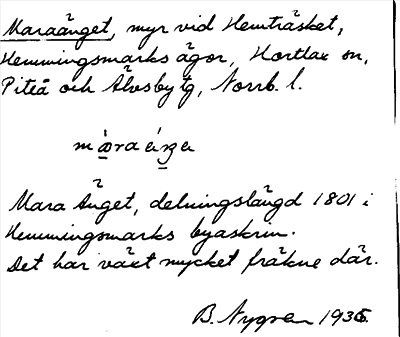 Maraänget, myr vid Hemträsket,
Hemmingsmarks ägor, Hortlax sn,
Piteå och Älvsby tg, Norrb. l.
Mara Änget, delningslängd 1801 i
Hemmingsmarks byaskrin.
Det har växt mycket fräkne där.
B. Nygren 1936.